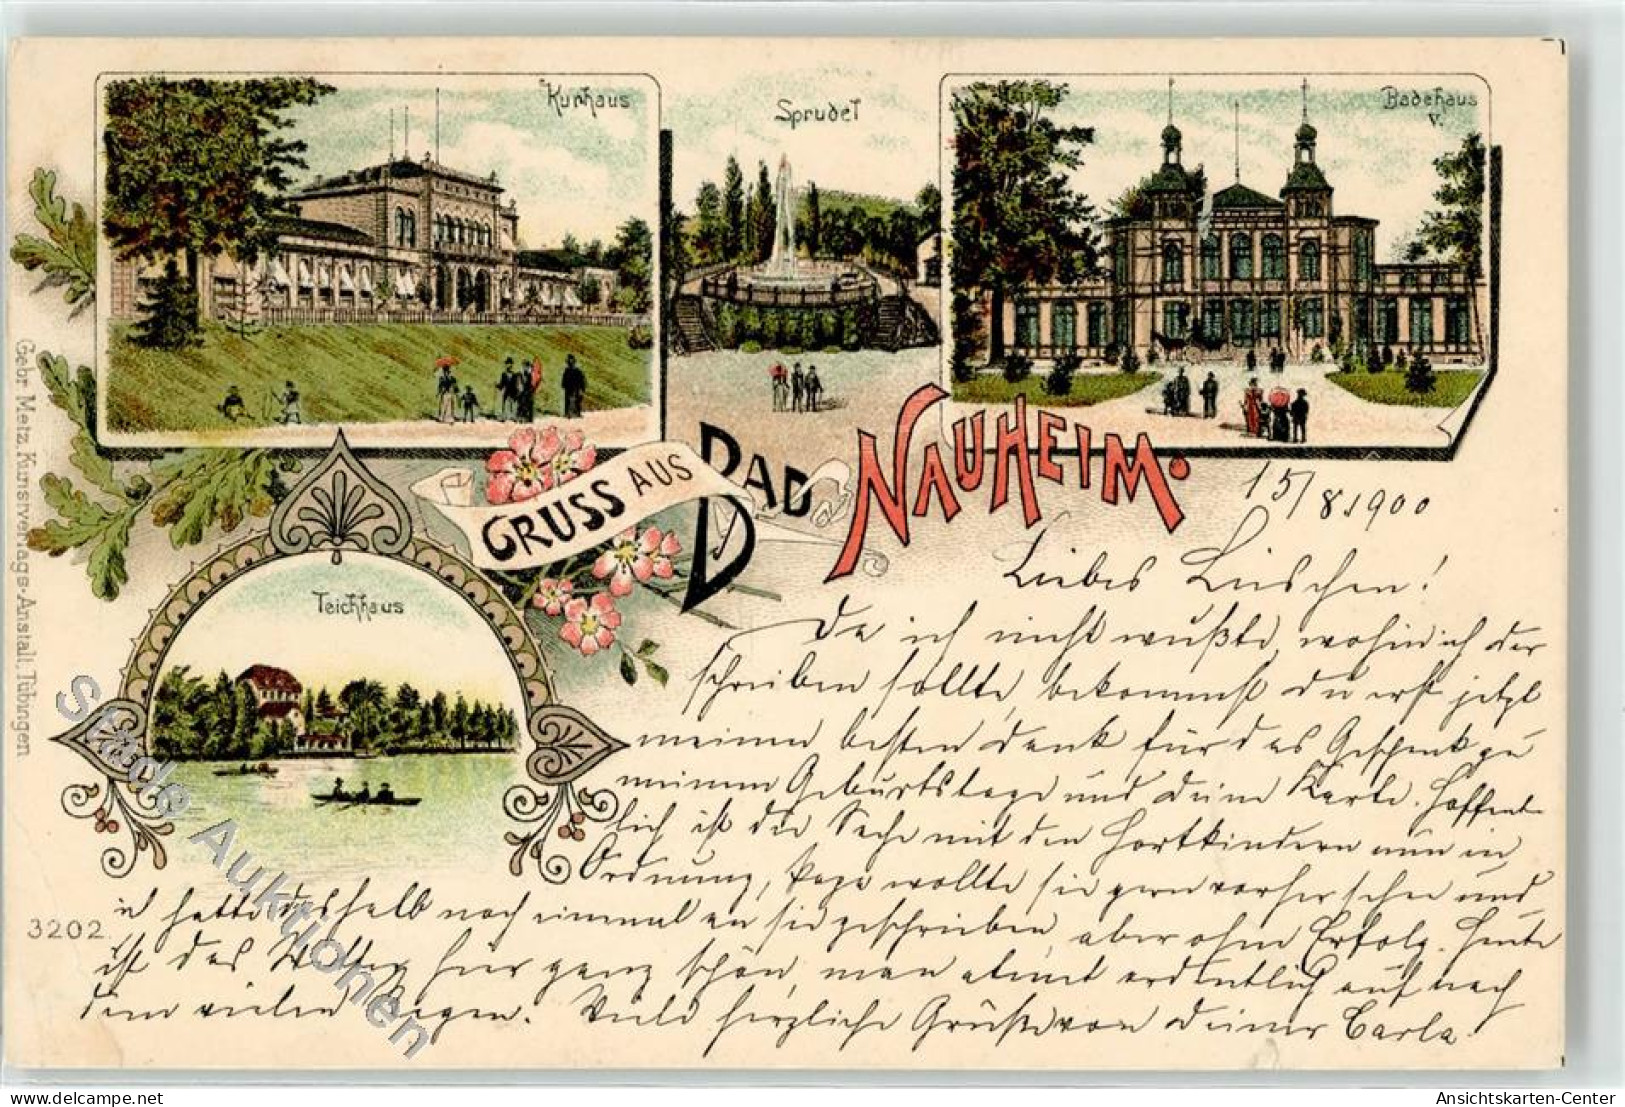 Kurhaus
Sprudel
Badehaus
V.
GRUSS AUS BAD NAUHEIM.
Teichhaus
Gebr. Metz, Kunstverlags-Anstalt, Tübingen
3202.
15/8.1900
Liebes Lieschen!
Da ich nicht wußte, wohin ich dir
schreiben sollte, bekommst du erst jetzt
meinen besten Dank für das Geschenk zu
meinem Geburtstage und deine Karte. Hoffent-
lich ist die Sache mit den Hortkindern nun in
Ordnung, Papa wollte sie gern vorher sehen und
ich hatte deshalb noch einmal an sie geschrieben, aber ohne Erfolg. Heute
ist das Wetter hier ganz schön, man atmet ordentlich auf nach
dem vielen Regen. Viele herzliche Grüße von deiner Carla.
Städe Auktionen
oldthing.de
Ansichtskarten-Center